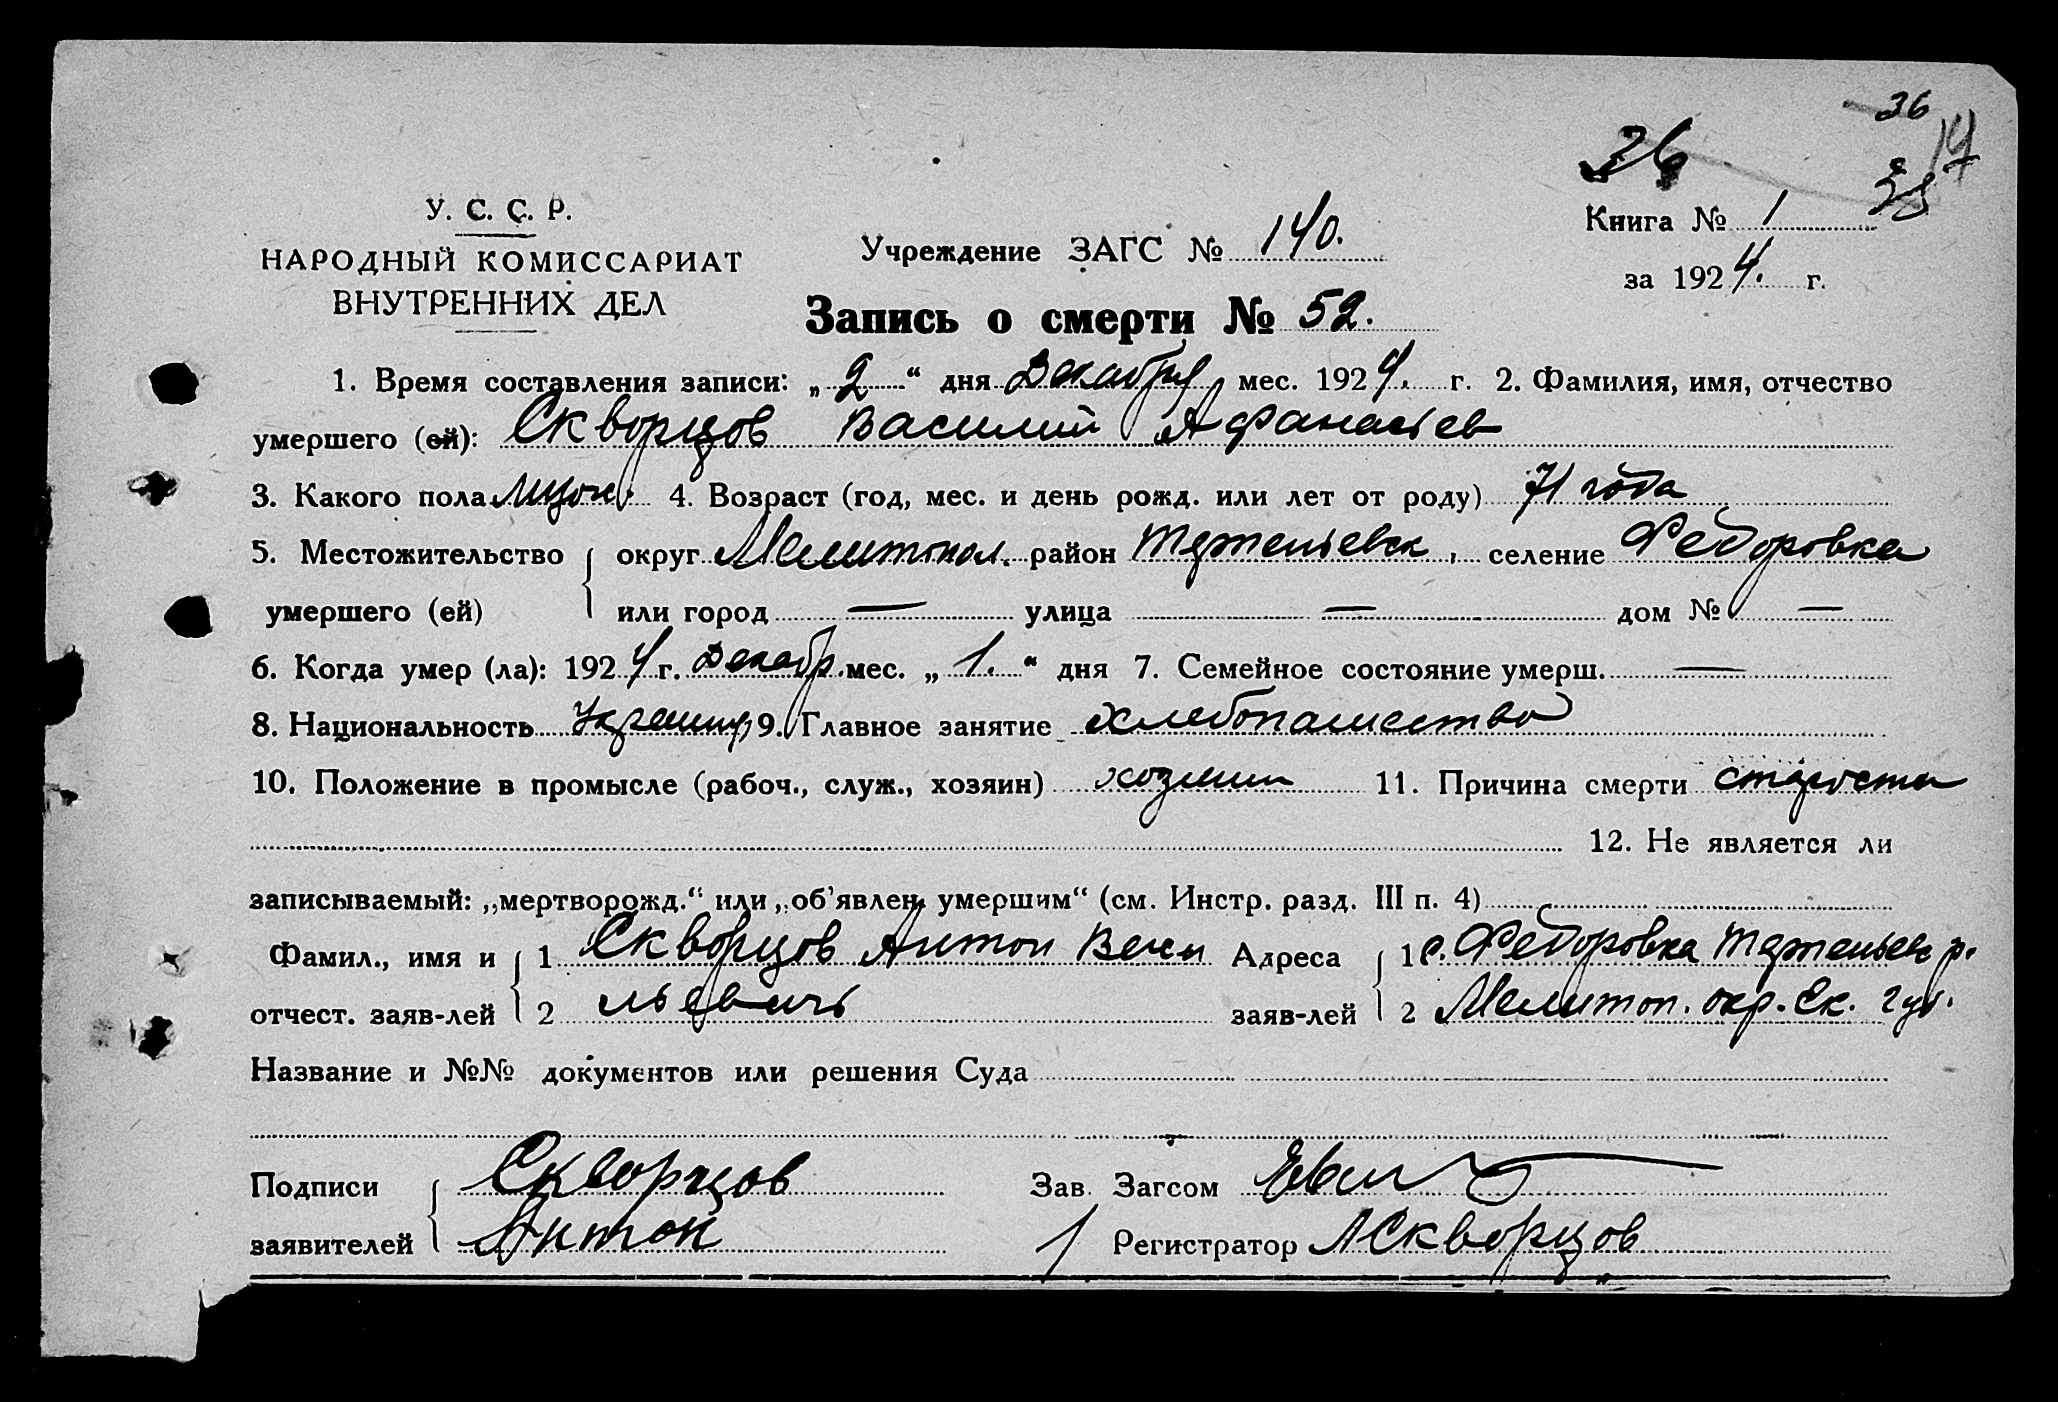 36
36
У. С. С. Р.
НАРОДНЫЙ КОМИССАРИАТ
ВНУТРЕННИХ ДЕЛ
Учреждение ЗАГС № 140.
Книга № 1
за 1924. г.
Запись о смерти № 52.
1. Время составления записи: „2“ дня Декабря мес. 1924. г. 2. Фамилия, имя, отчество
умершего (ей): Скворцов Василий Афанасьев
3. Какого пола 4. Возраст (год, мес. и день рожд. или лет от роду) 71 года
5. Местожительство округ Мелитопол. район селение Федоровка
умершего (ей) или город — улица — дом № —
6. Когда умер (ла): 1924 г. Декабр. мес. „1.“ дня 7. Семейное состояние умерш. —
8. Национальность Украинц 9. Главное занятие хлебопашество
10. Положение в промысле (рабоч., служ., хозяин) хозяин 11. Причина смерти старость
12. Не является ли
записываемый: „мертворожд.“ или „об'явлен. умершим“ (см. Инстр. разд. III п. 4)
Фамил., имя и 1 Скворцов Антон Васи Адреса 1 с. Федоровка р.
отчест. заяв-лей 2 льевичъ заяв-лей 2 Мелитоп. окр. Ек. губ.
Название и №№ документов или решения Суда
Подписи Скворцов Зав. Загсом
заявителей Антон Регистратор АСкворцов